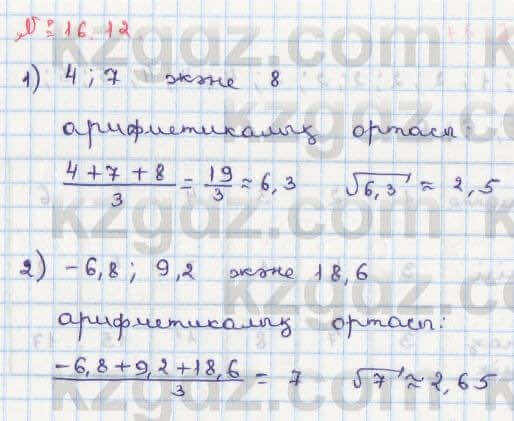 № 16.12
1) 4; 7 және 8
арифметикалық ортасы:
(4 + 7 + 8)/3 = 19/3 ≈ 6,3 √6,3 ≈ 2,5
2) -6,8; 9,2 және 18,6
арифметикалық ортасы:
(-6,8 + 9,2 + 18,6)/3 = 7 √7 ≈ 2,65
kzgdz.com